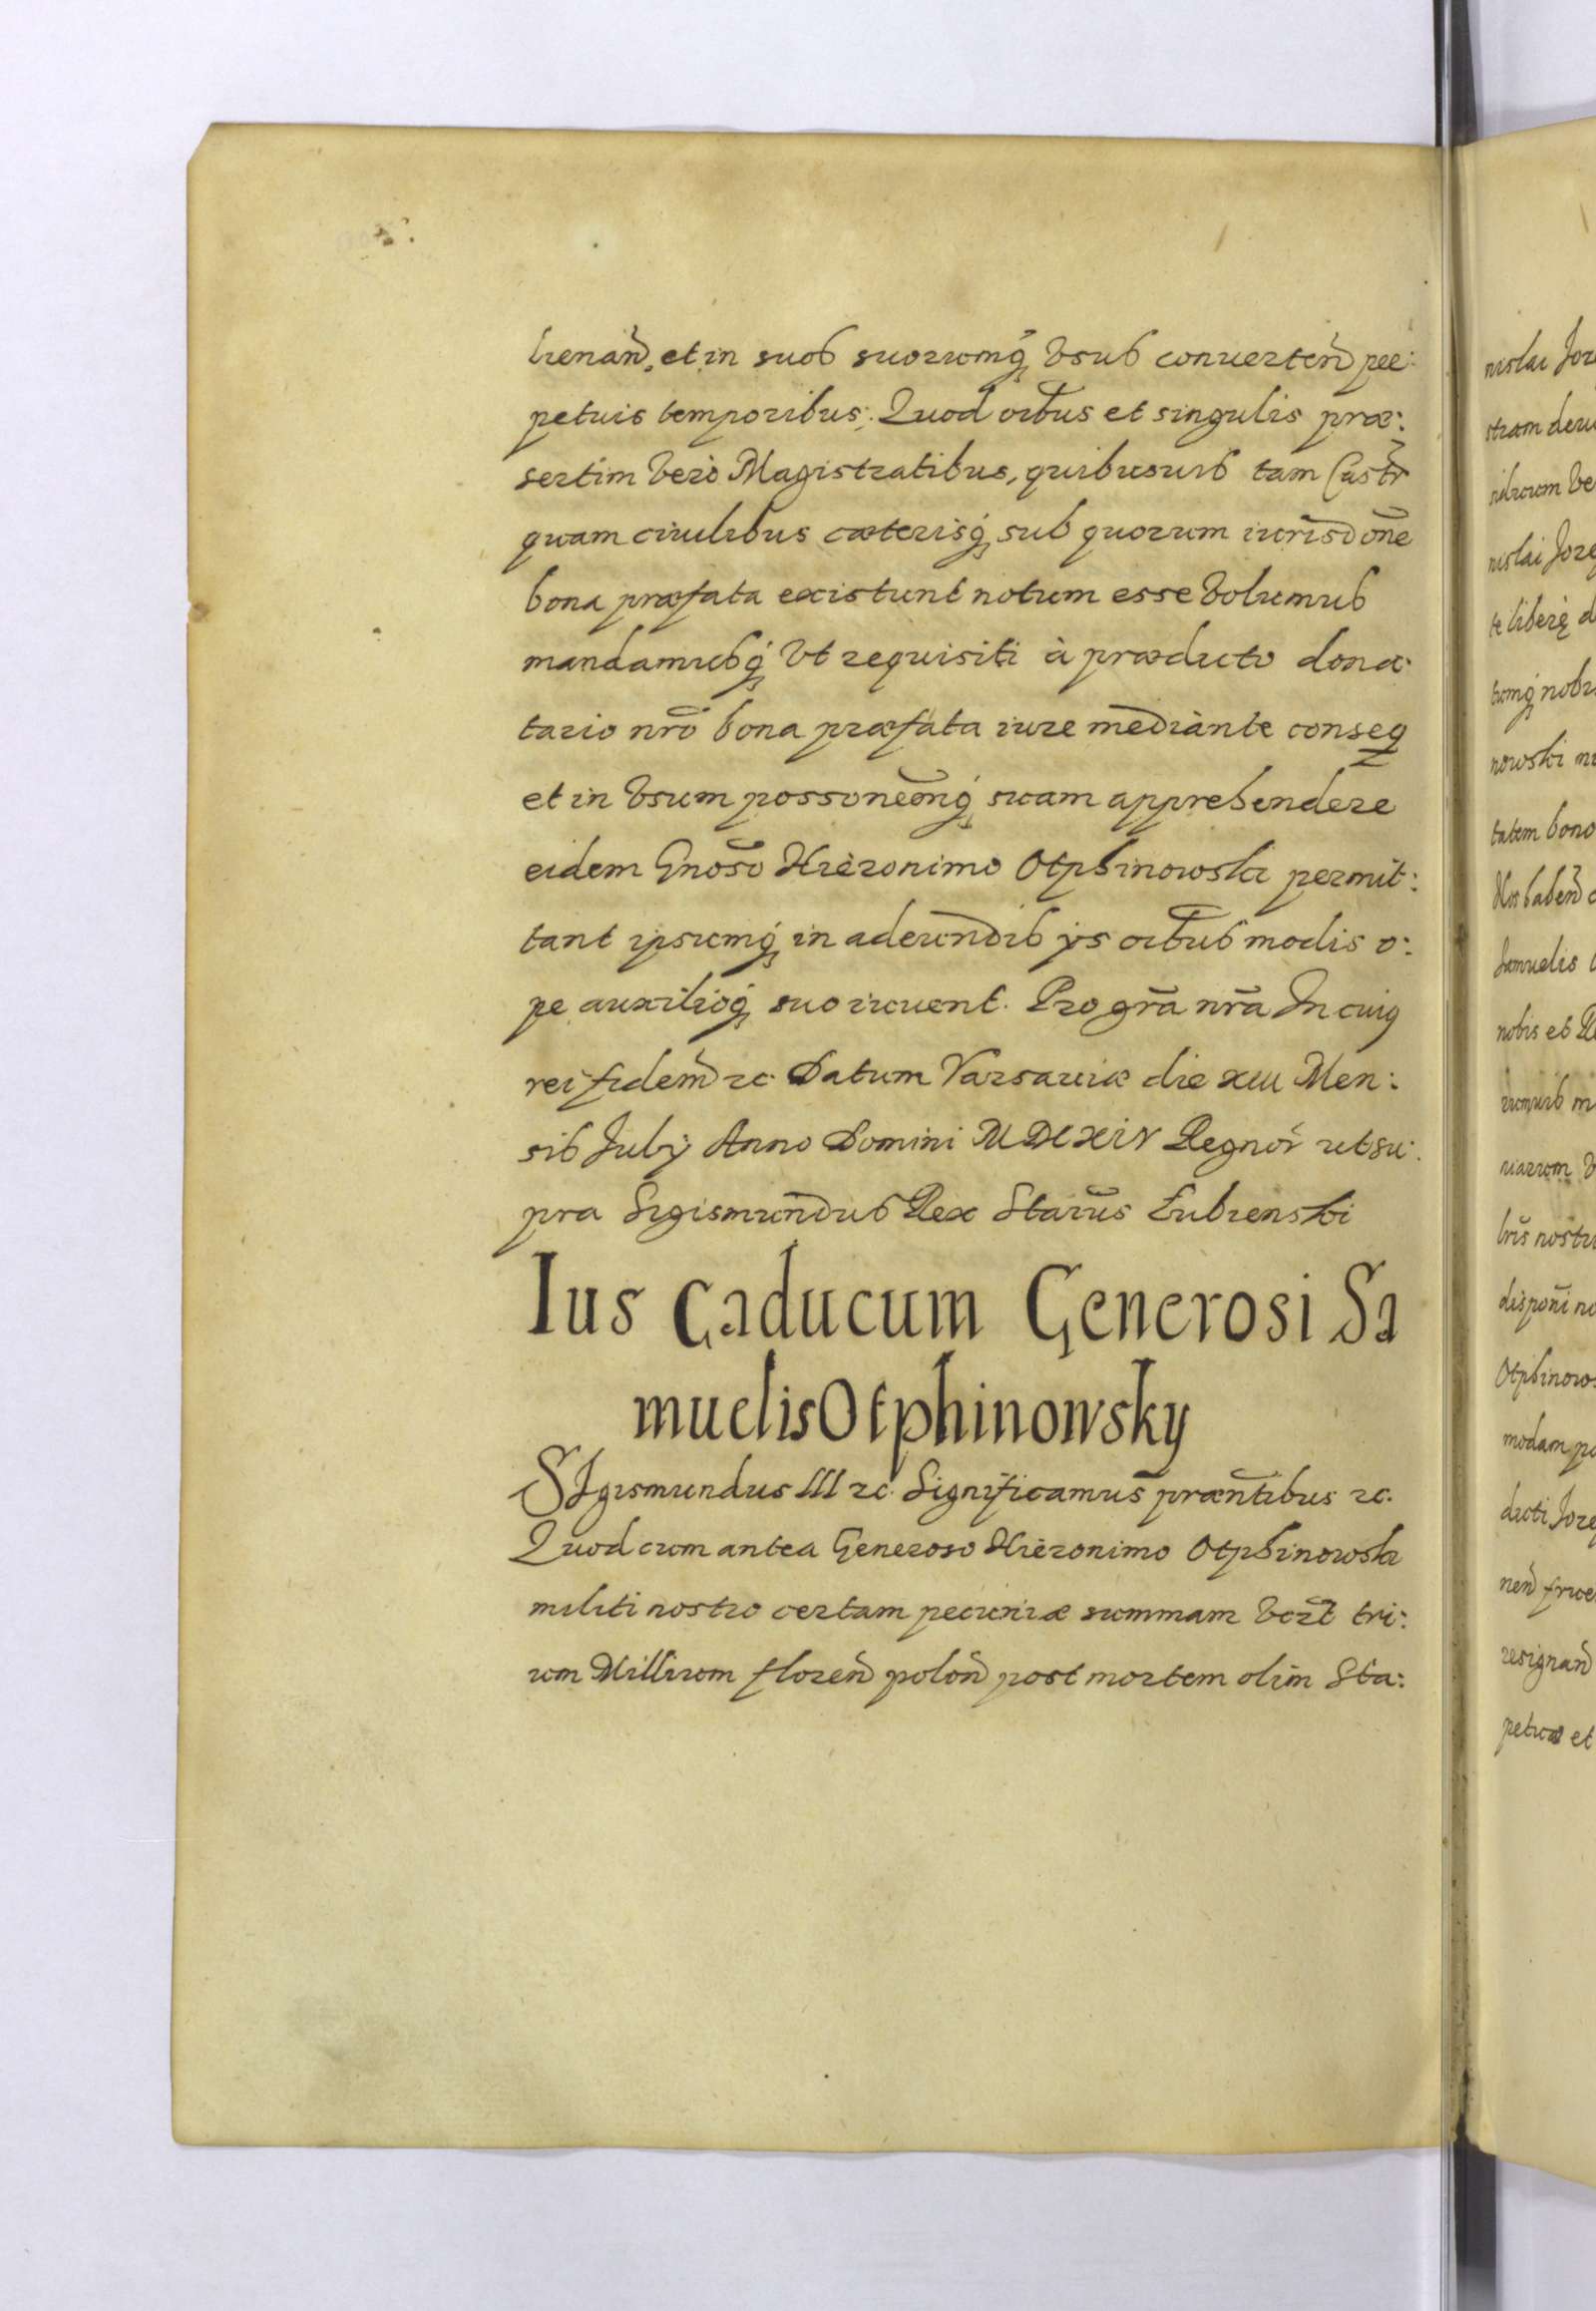 lienañ. et in suos suorumq́ꝫ Vsus conuerteñ per:
petuis temporibus; Quod oibus et singulis præ:
sertim Verò Magistratibus, quibusuis tam Castr̃
quam ciuilibus cæterisq́ꝫ sub quorum iurisdõne
bona præfata existunt notum esse Volumus
mandamusq́ꝫ Vt requisiti à prædicto dona:
tario nr̃o bona præfata iure mediante conseq
et in Vsum possonẽmq́ꝫ suam apprehendere
eidem Gnõso Hieronimo Otphinowski permit:
tant ipsumq́ꝫ in adeundis ijs oibus modis o:
pe auxilioq́ꝫ suo iuuent. Pro grã nrã In cuiꝯ
rei fidem̃ ꝛc. Datum Varsauiæ die xiii Men:
sis Julij Anno Domini MDCXIV Regnor̃ ut su:
pra Sigismundus Rex Starũs Lubienski
Ius Caducum Generosi Sa
muelis Otphinowsky
SIgismundus III ꝛc. Significamus præñtibus ꝛc.
Quod cum antea Generoso Hieronimo Otphinowski
militi nostro certam pecuniæ summam Vizt tri:
um Millium floreñ poloñ post mortem olim Sta:
nislai
sidiuum
nislai
te liberè
tumq́ꝫ
nowski
tatem bono
Samuelis
nobis et
uiarum
lris̃
Otphinow
modam
dicti
resignañ
et